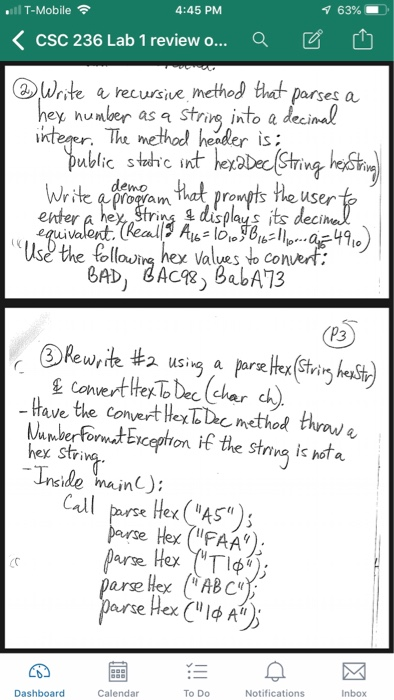 T-Mobile 4:45 PM 63%
CSC 236 Lab 1 review o...
② Write a recursive method that parses a
hex number as a string into a decimal
integer. The method header is:
public static int hex2Dec(String hexString)
demo
Write a program that prompts the user to
enter a hex string & displays its decimal
equivalent. (Recall: A16 = 1010, B16 = 1110...
Use the following hex values to convert:
BAD, BAC98, BabA73
(P3)
③ Rewrite #2 using a parseHex(String hexStr)
& convertHexToDec (char ch).
- Have the convertHexToDec method throw a
NumberFormatException if the string is not a
hex string.
- Inside main():
Call parse Hex ("A5");
parse Hex ("FAA");
parse Hex ("T1∅");
parse Hex ("ABC");
parse Hex ("1∅A");
Dashboard Calendar To Do Notifications Inbox